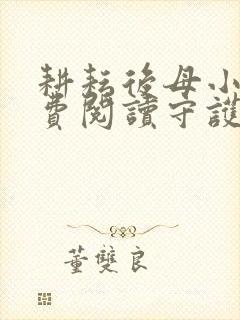 耕耘後母小
費閱讀守護
董雙良